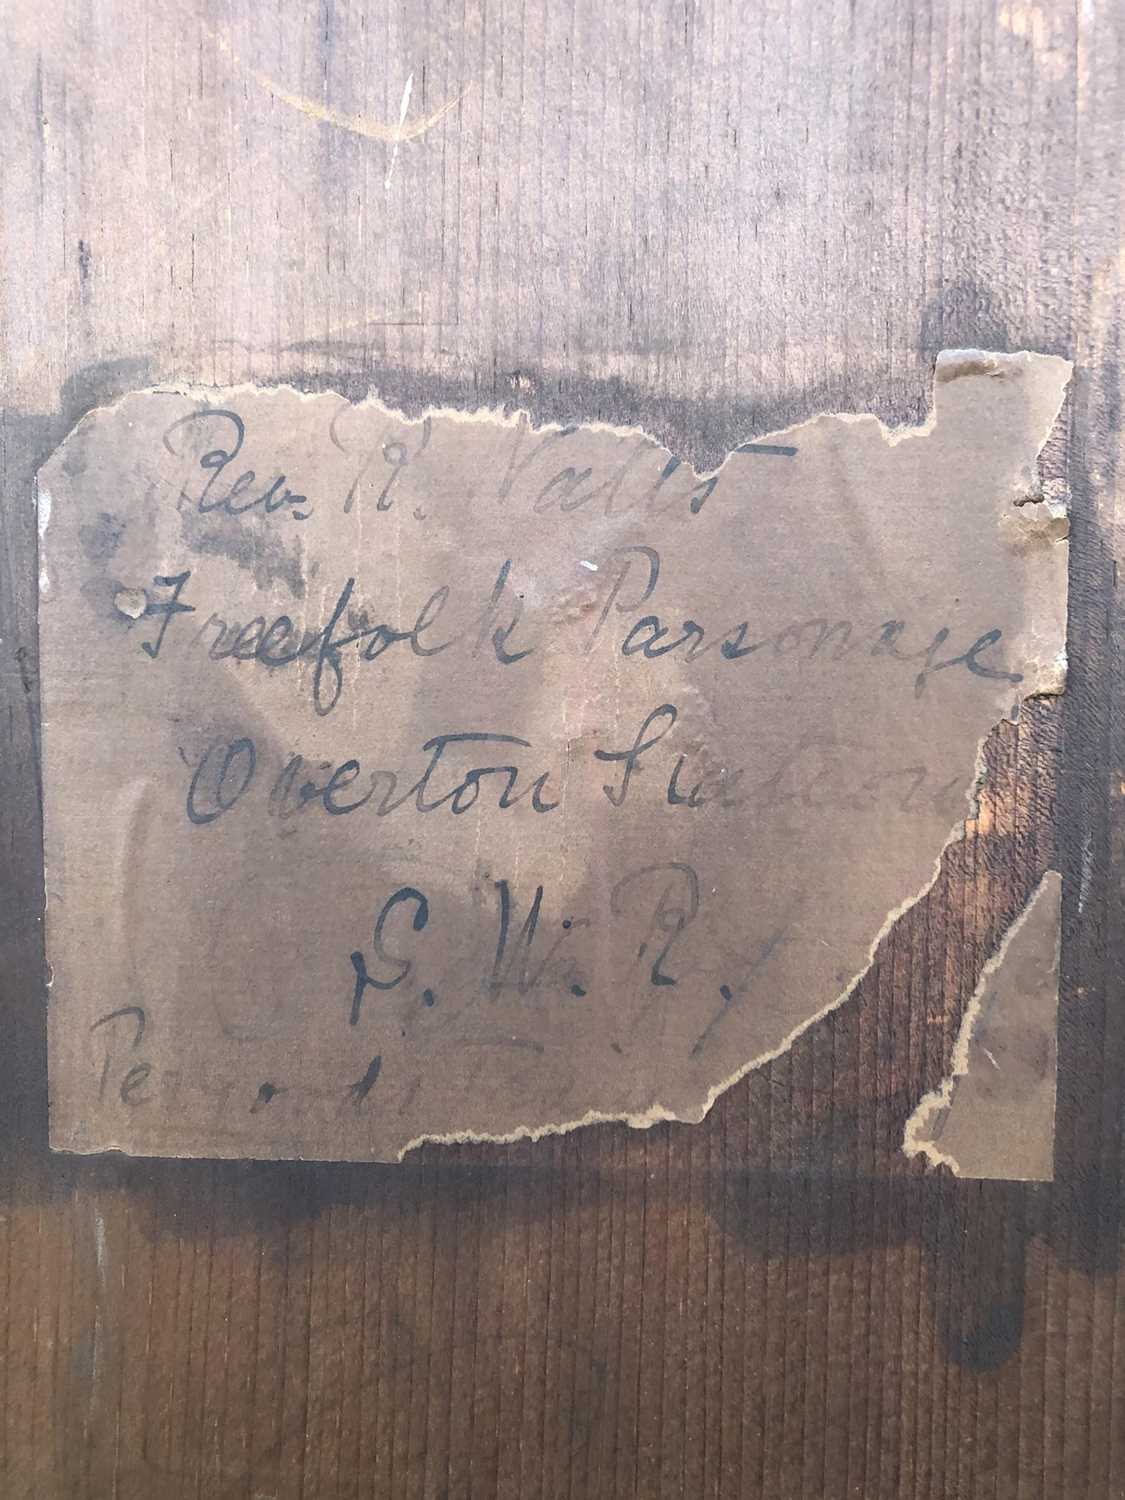 Rev. R. Watts
Freefolk Parsonage
Overton Station
S. W. Ry
Per